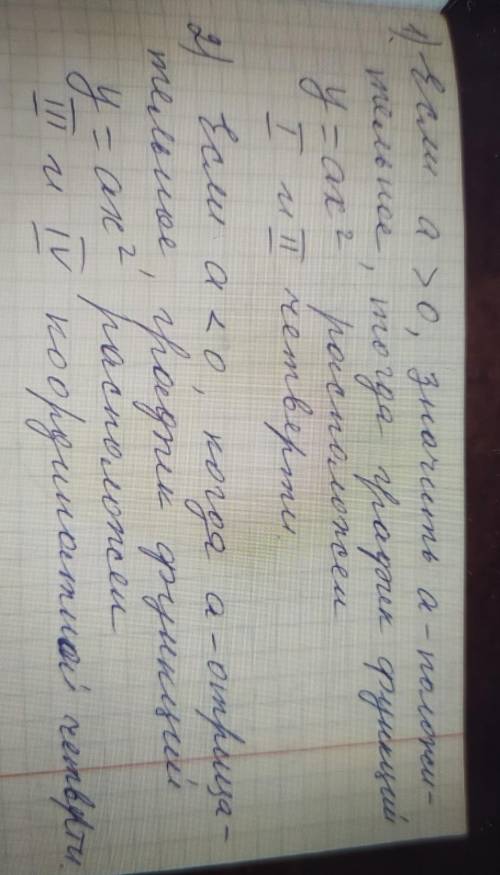 1) Если a > 0, значить a - положи-
тельное, тогда график функций
y = ax² расположен
I и II четверти.
2) Если a < 0, когда a - отрица-
тельное, график функций
y = ax², расположен
III и IV координатной четверти.